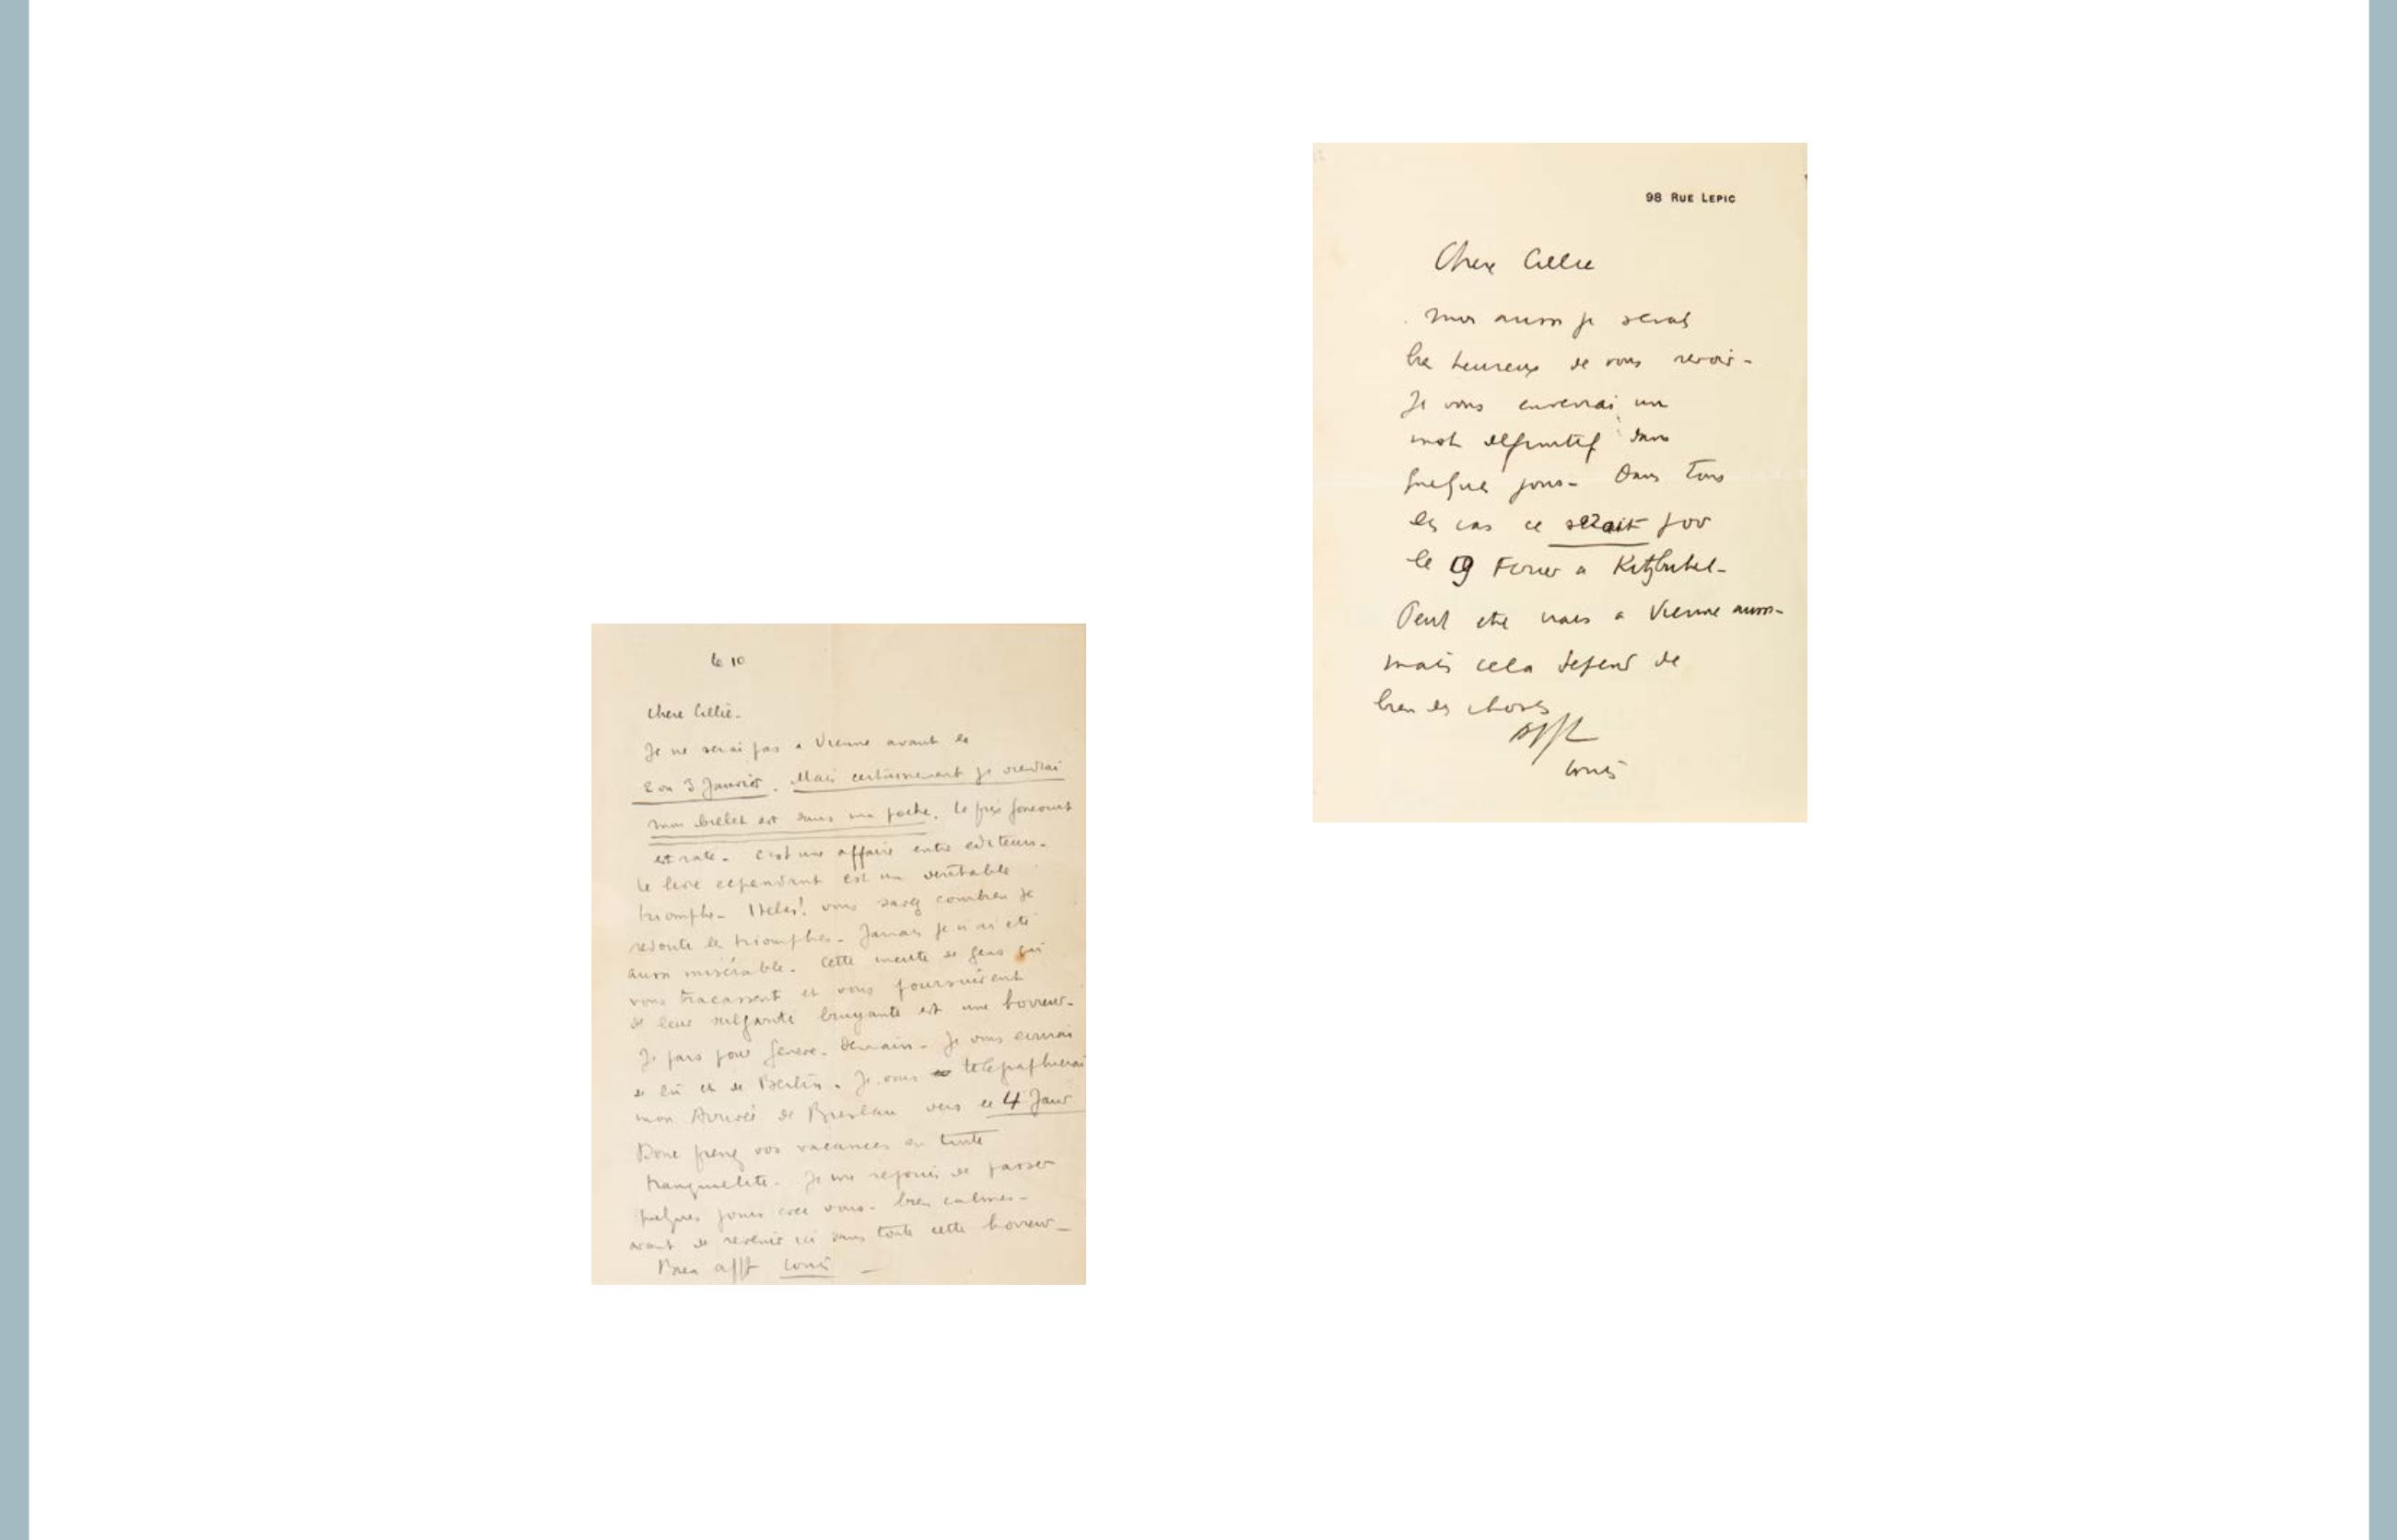 le 10
Chere Cillie-
Je ne serai pas a Vienne avant le
2 ou 3 Janvier. Mais certainement je viendrai
mon billet est dans ma poche. Le prix Goncourt
est raté- C'est une affaire entre editeurs-
Le livre cependant est un veritable
triomphe- Helas! vous savez combien je
redoute les triomphes- Jamais je n'ai été
aussi misérable- Cette meute de gens qui
vous tracassent et vous poursuivent
de leur vulgarité bruyante est une horreur-
Je pars pour Geneve- Demain- Je vous ecrirai
de là et de Berlin. Je vous telegraphierai
mon Arrivée de Breslau vers le 4 Janv
Donc prenez vos vacances en toute
tranquilite- Je me rejouis de passer
quelques jours avec vous- bien calmes-
avant de revenir ici dans toute cette horreur-
Bien afft Louis -
98 RUE LEPIC
Chere Cillie
moi aussi je serais
tres heureux de vous revoir-
Je vous enverrai un
mot définitif dans
quelques jours- Dans tous
les cas ce serait pour
le 19 Fevrier a Kitzbuhel-
Peut etre irais a Vienne aussi-
mais cela depend de
bien des choses
afft
Louis